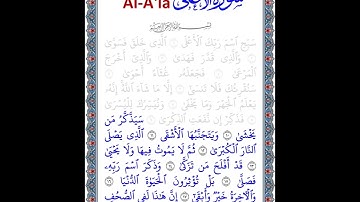 سورة الأعلى Al-A'la
بِسْمِ اللَّهِ الرَّحْمَٰنِ الرَّحِيمِ
سَبِّحِ ٱسْمَ رَبِّكَ ٱلْأَعْلَى ١ ٱلَّذِى خَلَقَ فَسَوَّىٰ
٢ وَٱلَّذِى قَدَّرَ فَهَدَىٰ ٣ وَٱلَّذِىٓ أَخْرَجَ
ٱلْمَرْعَىٰ ٤ فَجَعَلَهُۥ غُثَآءً أَحْوَىٰ ٥
سَنُقْرِئُكَ فَلَا تَنسَىٰٓ ٦ إِلَّا مَا شَآءَ ٱللَّهُ إِنَّهُۥ
يَعْلَمُ ٱلْجَهْرَ وَمَا يَخْفَىٰ ٧ وَنُيَسِّرُكَ لِلْيُسْرَىٰ
٨ فَذَكِّرْ إِن نَّفَعَتِ ٱلذِّكْرَىٰ ٩ سَيَذَّكَّرُ مَن
يَخْشَىٰ ١٠ وَيَتَجَنَّبُهَا ٱلْأَشْقَى ١١ ٱلَّذِى يَصْلَى
ٱلنَّارَ ٱلْكُبْرَىٰ ١٢ ثُمَّ لَا يَمُوتُ فِيهَا وَلَا يَحْيَىٰ
١٣ قَدْ أَفْلَحَ مَن تَزَكَّىٰ ١٤ وَذَكَرَ ٱسْمَ رَبِّهِۦ
فَصَلَّىٰ ١٥ بَلْ تُؤْثِرُونَ ٱلْحَيَوٰةَ ٱلدُّنْيَا ١٦
وَٱلْءَاخِرَةُ خَيْرٌ وَأَبْقَىٰٓ ١٧ إِنَّ هَٰذَا لَفِى ٱلصُّحُفِ